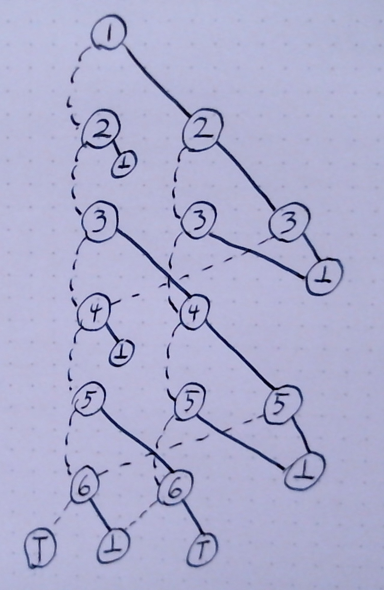 1
2 2
⊥
3 3 3
⊥
4 4
⊥
5 5 5
⊥
6 6
T ⊥ T